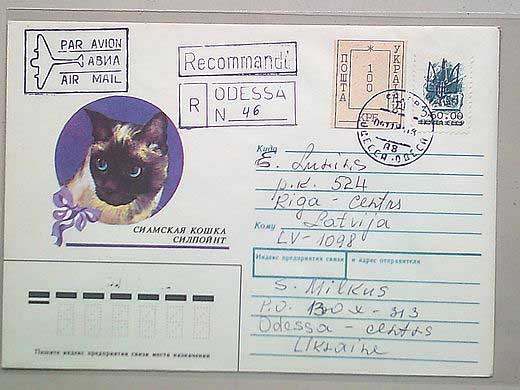 PAR AVION
АВИА
AIR MAIL
Recommandé
R
ODESSA
N 46
ПОШТА
* 100
КРБ
УКРАЇНА
60.00
ОДЕССА
Куда
E. Lusins
p.k. 524
Riga - centrs
Кому
Latvija
LV-1098
СИАМСКАЯ КОШКА
СИЛПОЙНТ
Индекс предприятия связи и адрес отправителя
S. Milkus
P.O. BOX - 313
Odessa - centrs
Ukraine
Пишите индекс предприятия связи места назначения